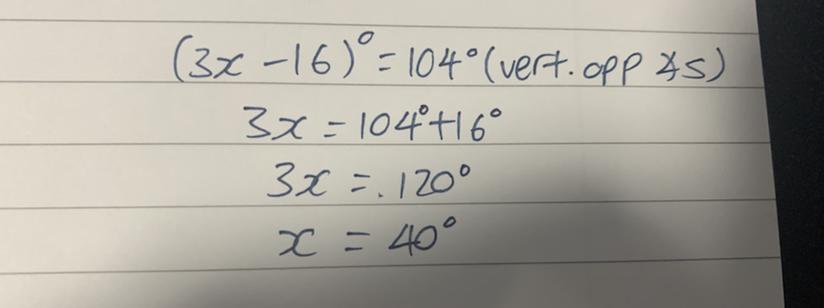 (3x - 16)° = 104° (vert. opp ∡s)
3x = 104° + 16°
3x = . 120°
x = 40°